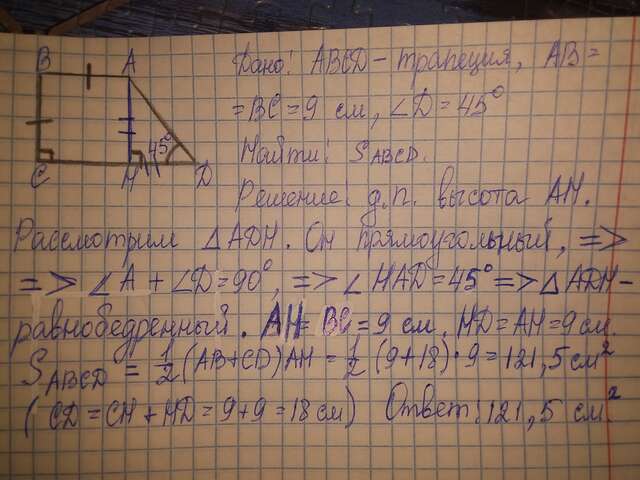 B
A
C
H
D
45°
Дано: ABCD – трапеция, AB =
= BC = 9 см, ∠D = 45°
Найти: S ABCD.
Решение: д.п. высота AH.
Рассмотрим ΔADH. Он прямоугольный, =>
=> ∠A + ∠D = 90°, => ∠HAD = 45° => ΔADH –
равнобедренный. AH = BC = 9 см, HD = AH = 9 см.
S ABCD = 1/2 (AB + CD) AH = 1/2 (9 + 18) · 9 = 121,5 см²
(CD = CH + HD = 9 + 9 = 18 см) Ответ: 121,5 см²